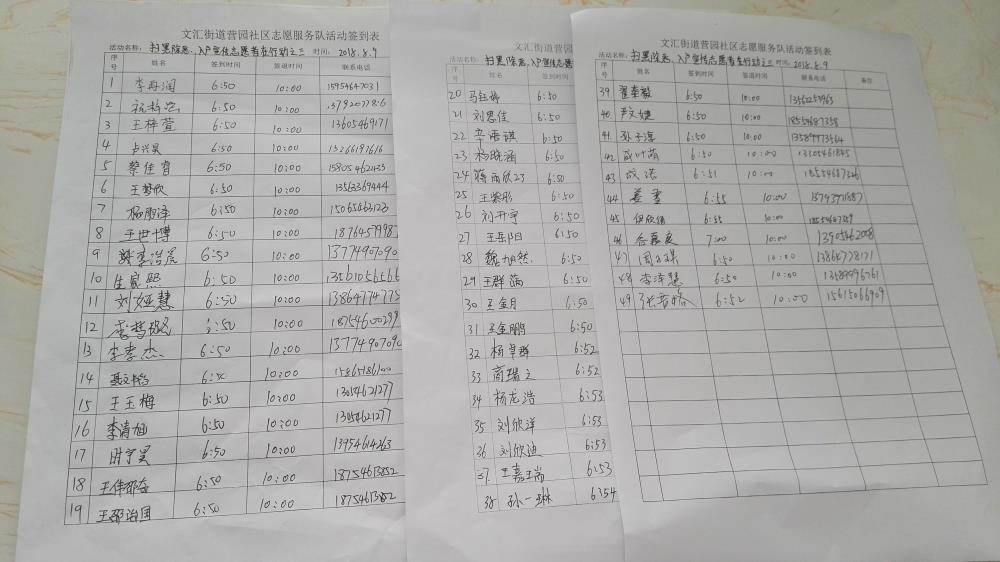 文汇街道营园社区志愿服务队活动签到表
活动名称: 扫黑除恶、入户宣传志愿者在行动之三 时间: 2018.8.9
序号 姓名 签到时间 签退时间 联系电话
1 李冉润 6:50 10:00 15954647031
2 6:50 10:00
3 王梓萱 6:50 10:00 13605469171
4 卢兴泉 6:50 10:00 13266197616
5 蔡佳睿 6:50 10:00 15805462433
6 王梦欣 6:50 10:00 13563369444
7 杨雨泽 6:50 10:00 15065463123
8 王世博 6:50 10:00 1876457998
9 6:50 10:00 13774907090
10 生家熙 6:50 10:00
11 刘娅慧 6:50 10:00 13864774775
12 :50 10:00 18754600299
13 李孝杰 6:50 10:00 13774907090
14 10:00
15 王玉梅 6:50 10:00 13054621277
16 李清旭 6:50 10:00 13054621277
17 6:50 10:00 13954614263
18 6:50 10:00 18754613852
19 王邵治国 6:50 10:00 18754613852
文汇街道营园社区
活动名称: 扫黑除恶、入户宣传志愿
序号 姓名 签到时间
20 马钰婷 6:50
21 刘思佳 6:50
22 辛语琪 6:50
23 杨晓涵 6:50
24 蒋雨欣 6:50
25 王紫彤 6:50
26 刘开宇 6:50
27 王岳阳 6:50
28 魏旭然 6:50
29 王群蒲 6:50
30 王金月 6:50
31 王金鹏 6:50
32 杨卓群 6:52
33 商瑞之 6:52
34 杨龙浩 6:53
35 刘欣洋 6:53
36 刘欣迪 6:53
37 王嘉瑞 6:53
38 孙一琳 6:54
文汇街道营园社区志愿服务队活动签到表
活动名称: 扫黑除恶、入户宣传志愿者在行动之三 时间: 2018.8.9
序号 姓名 签到时间 签退时间 联系电话 备注
39 6:50 10:00
40 尹文婕 6:50 10:00
41 孙子淳 6:50 10:00 13589973564
42 成叶萌 6:50 10:00
43 成浩 6:51 10:00
44 姜雪 6:55 10:00
45 6:55 10:00
46 7:00 10:00 13905462008
47 6:50 10:00
48 李泽慧 6:50 10:00 13589996761
49 6:52 10:00 15615066909